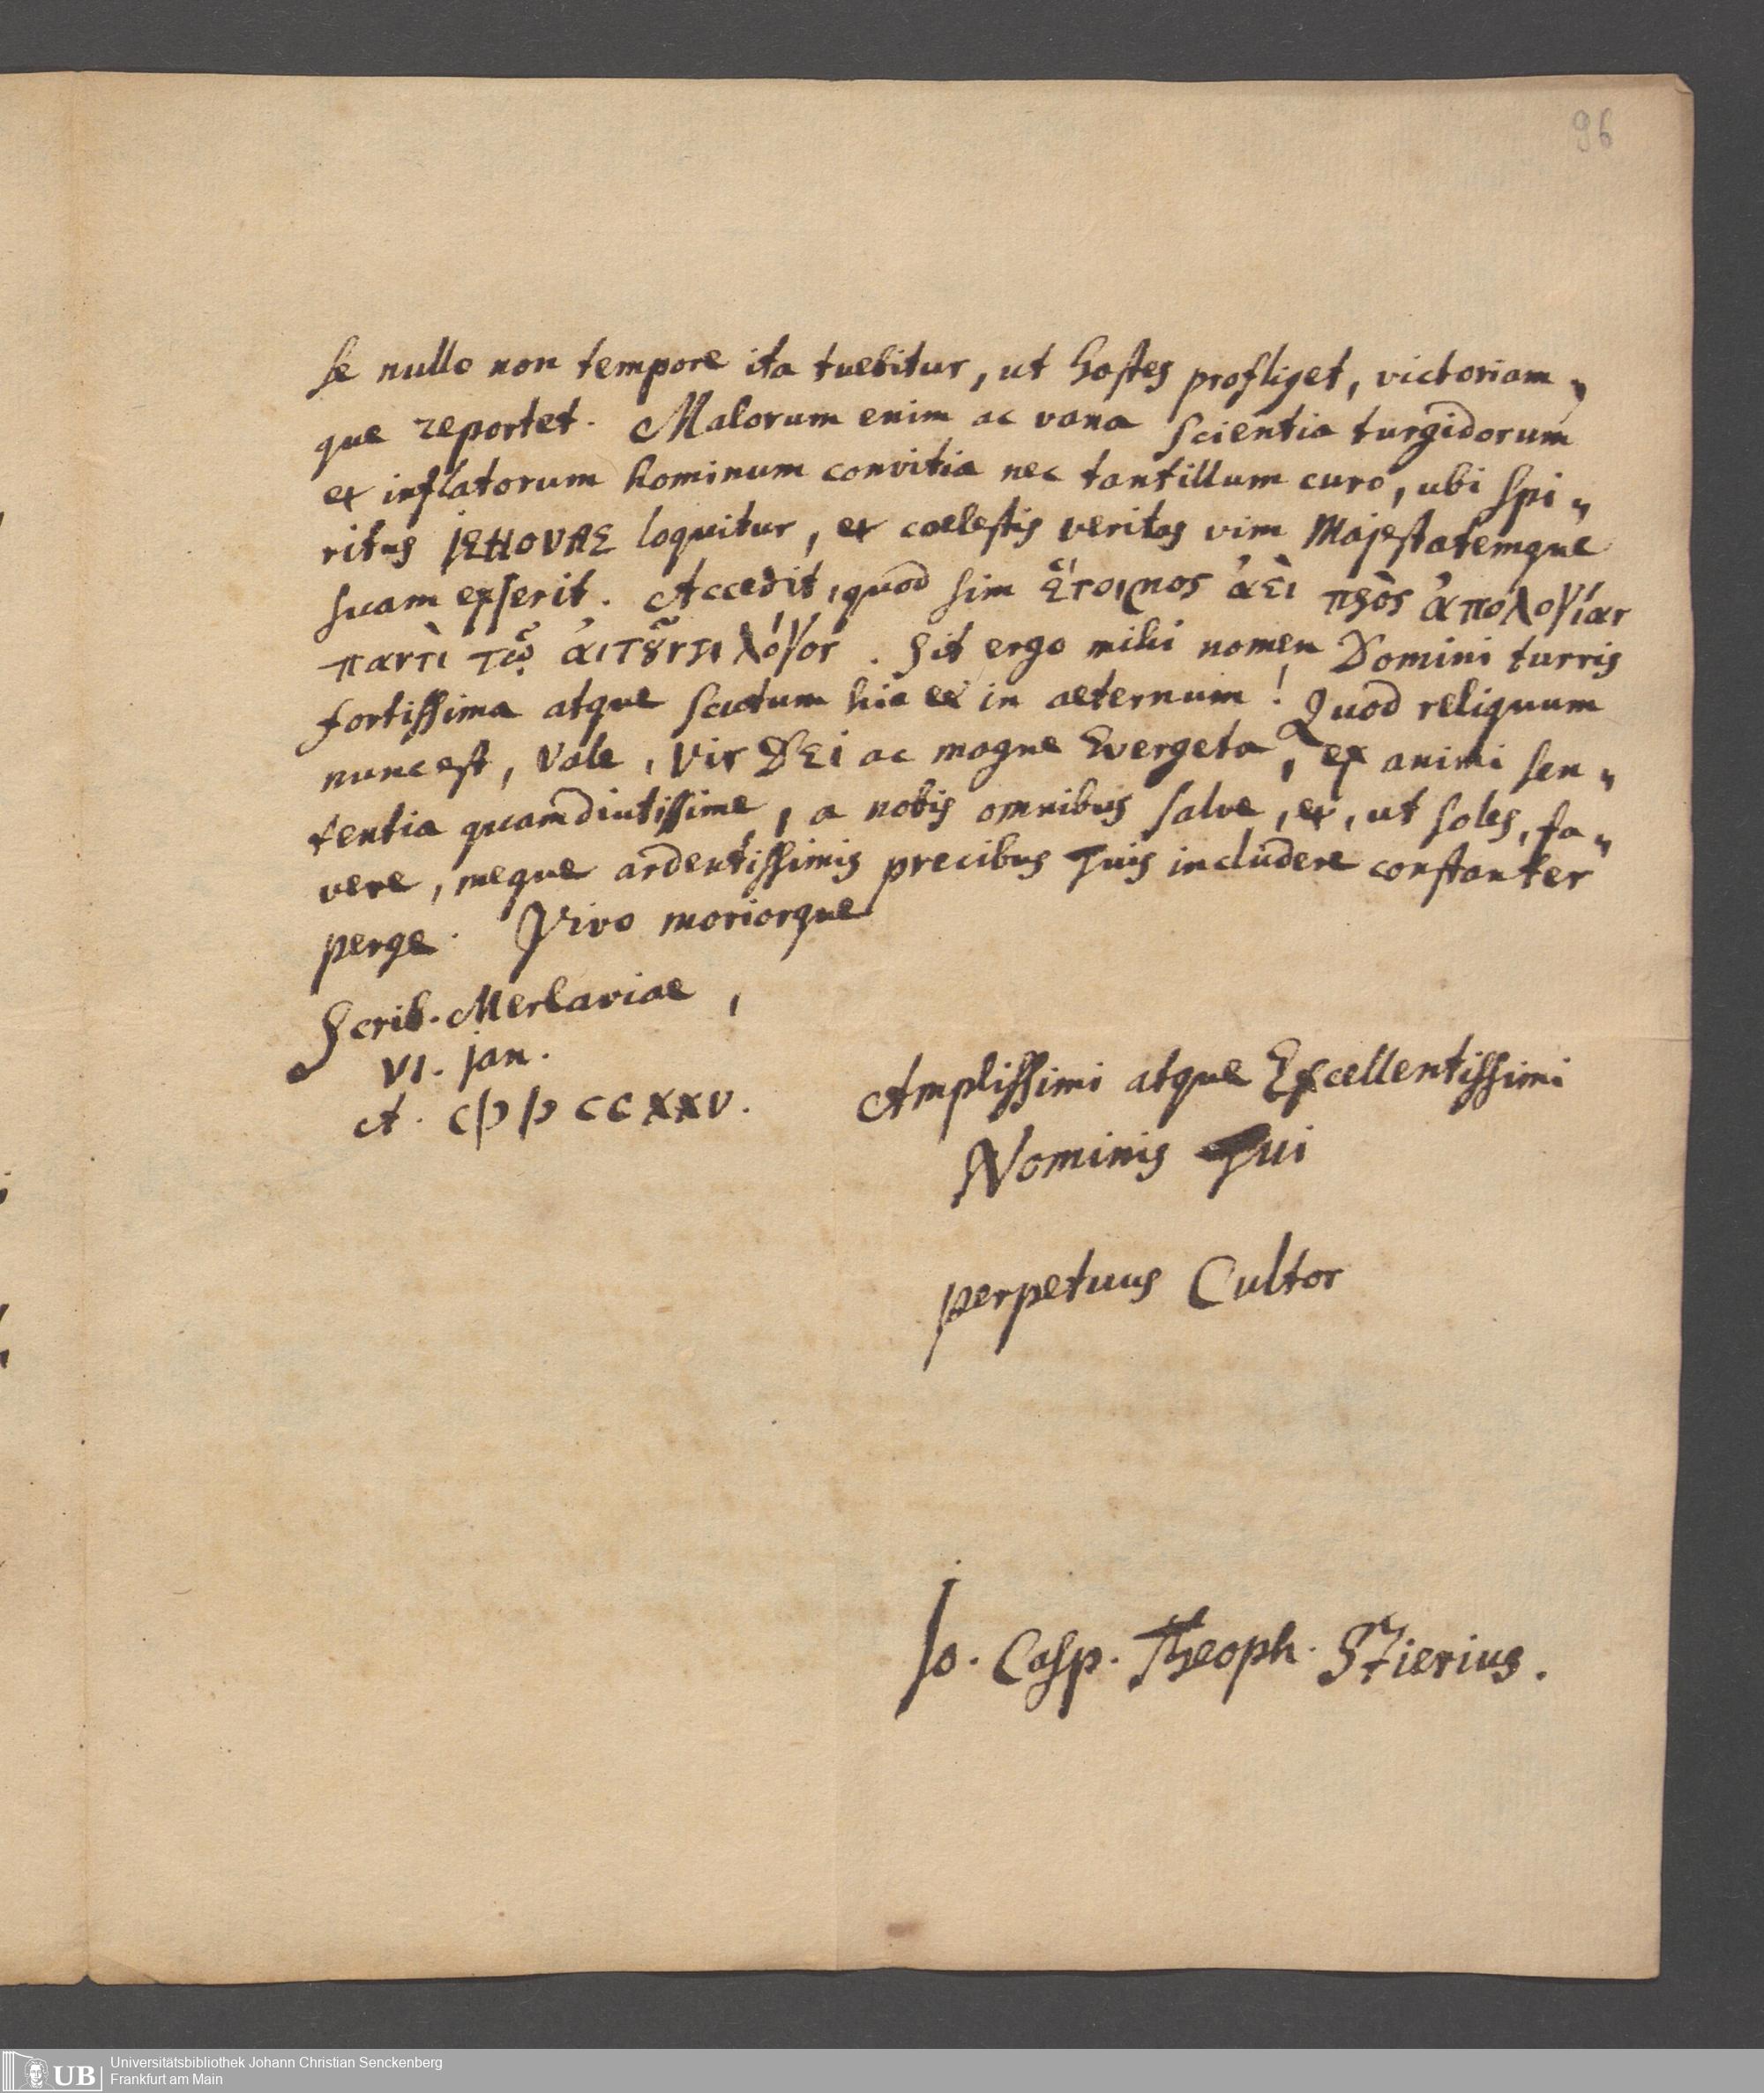 96
se nullo non tempore ita tuebitur, ut hostes profliget, victoriam„
que reportet. Malorum enim ac vana scientia turgidorum
et inflatorum hominum convitia nec tantillum curo, ubi Spi„
ritus JEHOVAE loquitur, et coelestis veritas vim Majestatemque
suam exserit. Accedit, quod sim ἕτοιμος ἀεὶ πρὸς ἀπολογίαν
παντὶ τῷ ἀιτοῦντι λόγον. Sit ergo mihi nomen Domini turris
fortissima atque scutum hic et in aeternum! Quod reliquum
nunc est, Vale, Vir DEi ac magne Evergeta, ex animi sen„
tentia quamdiutissime, a nobis omnibus salve, et, ut soles, fa„
vere, meque ardentissimis precibus Tuis includere constanter
perge. Vivo moriorque
Scrib. Merlaviae,
VI. Jan.
A. CIↃ IↃ CCXXV.
Amplissimi atque Excellentissimi
Nominis Tui
perpetuus Cultor
Jo. Casp. Theoph. Stierius.
UB Universitätsbibliothek Johann Christian Senckenberg
Frankfurt am Main